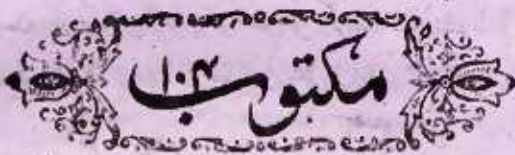 مکتوب ۱۰۴